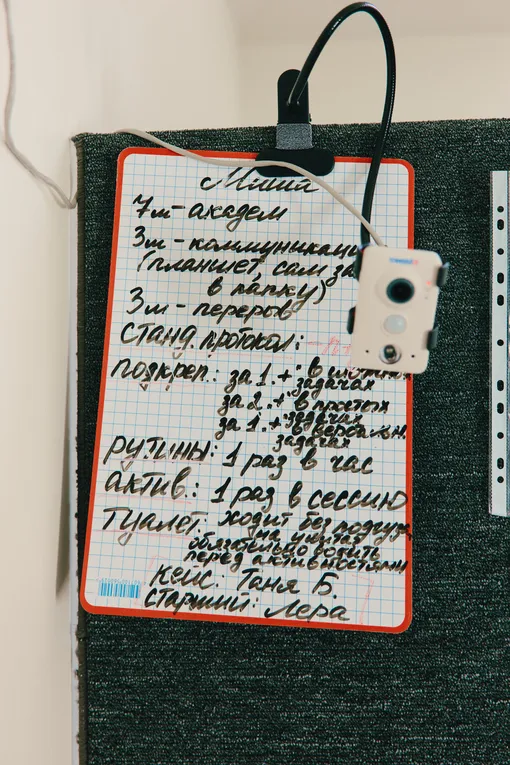 Миша
7м - академ
3м - коммуникаци
(планшет, сам за
в папку)
3м - перерыв
станд. протокол:
подкреп.: за 1 "+" в
задачах
за 2 "+" в простых
задачах
за 1 "+" в вербальн.
задачах
рутины: 1 раз в час
актив.: 1 раз в сессию
туалет: ходит без подгуз.
на унитаз
обязательно водить
перед активностями
кейс: Таня Б.
старший: Лера